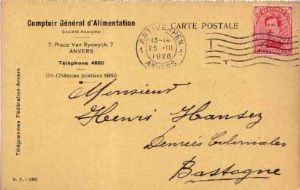 Comptoir Général d'Alimentation
Société Anonyme
7, Place Van Ryswyck, 7
ANVERS
Téléphone 4850
Ch-Chèques postaux 9850
Télégrammes Fédération-Anvers
CARTE POSTALE
ANTWERPEN
13-14
25 III
1920
ANVERS
Monsieur
Henri Hansez
Denrées Coloniales
Bastogne